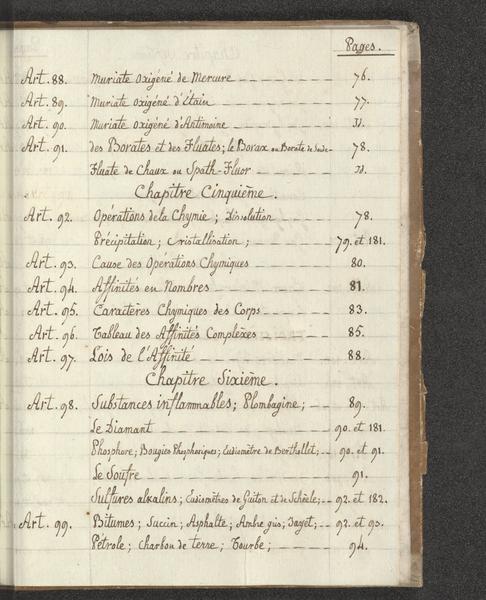 Pages.
Art. 88. Muriate Oxigéné de Mercure 76.
Art. 89. Muriate Oxigéné d'Étain 77.
Art. 90. Muriate Oxigéné d'Antimoine
Art. 91. des Borates et des Fluates; le Borax ou Borate de Soude 78.
Fluate de Chaux ou Spath-Fluor
Chapître Cinquième.
Art. 92. Opérations de la Chymie; Dissolution 78.
Précipitation; Cristallisation; 79. et 181.
Art. 93. Cause des Opérations Chymiques 80.
Art. 94. Affinités en Nombres 81.
Art. 95. Caractères Chymiques des Corps 83.
Art. 96. Tableau des Affinités Complexes 85.
Art. 97. Lois de l'Affinité 88.
Chapître Sixième.
Art. 98. Substances inflammables; Plombagine; 89.
Le Diamant 90. et 181.
Phosphore; Bougies Phosphoriques; Eudiomètre de Berthollet; 90. et 91.
Le Soufre 91.
Sulfures alkalins; Eudiomètres de Guiton et de Schèele; 92. et 182.
Art. 99. Bitumes; Succin; Asphalte; Ambre gris; Jayet; 92. et 93.
Pétrole; Charbon de terre; Tourbe; 94.